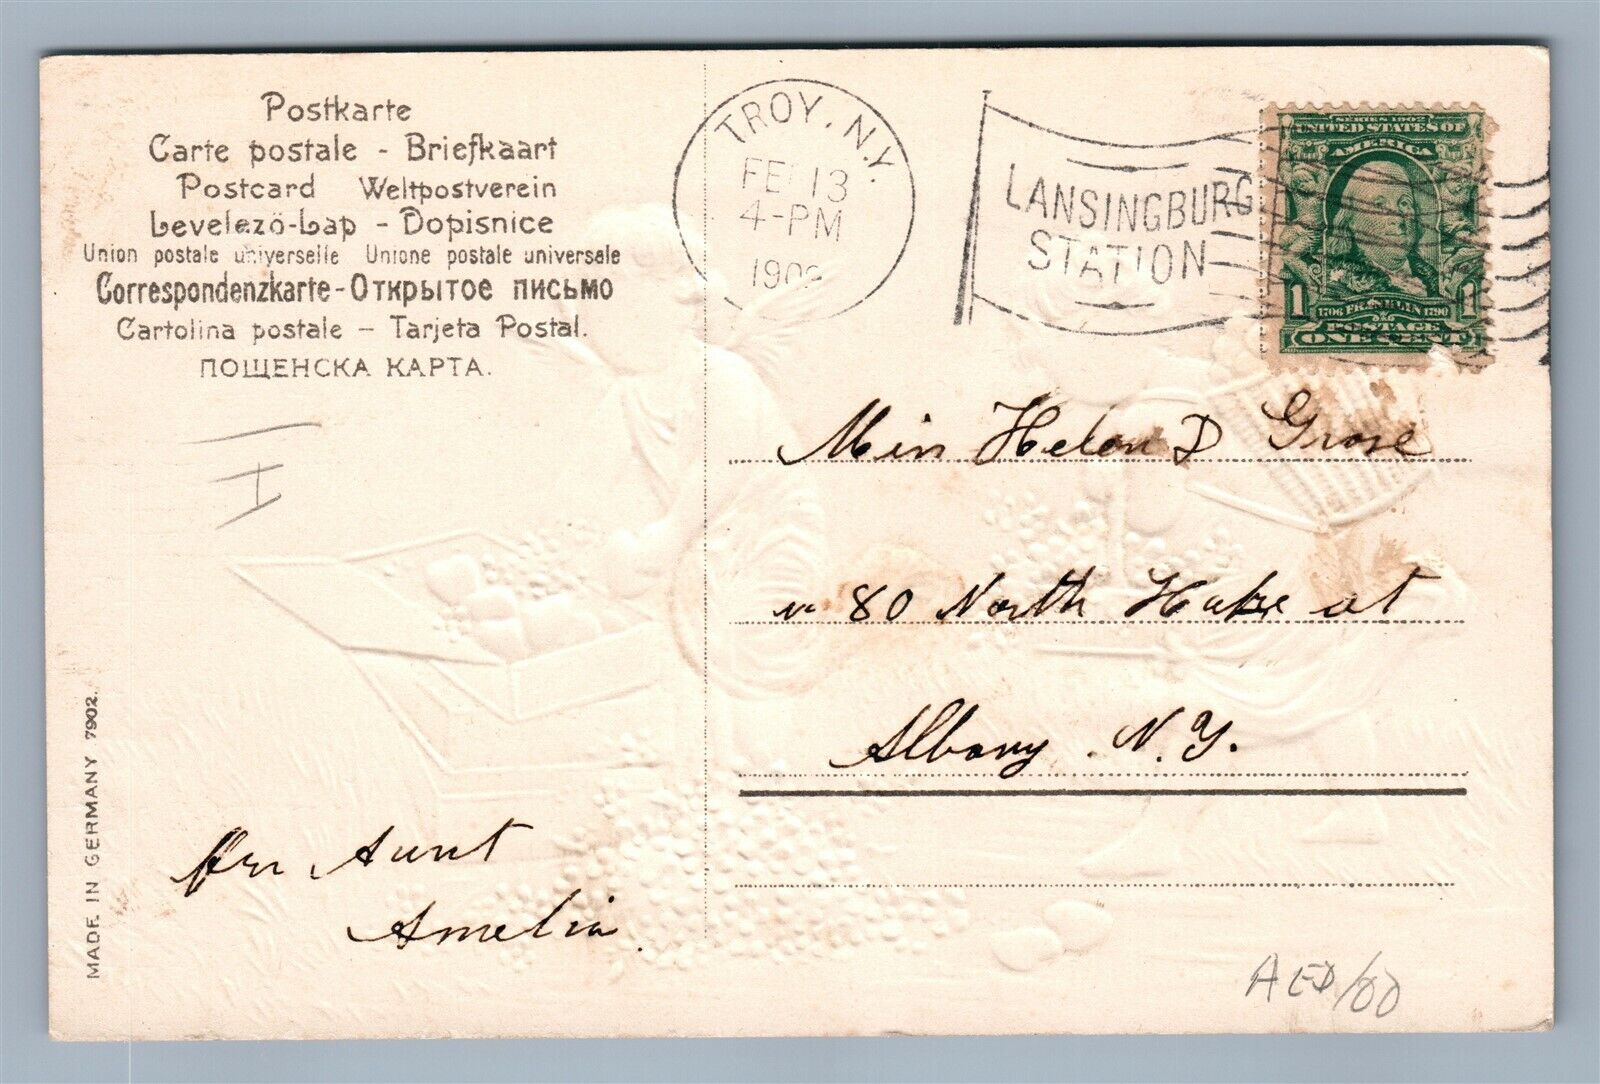 Postkarte
Carte postale - Briefkaart
Postcard Weltpostverein
Levelező-Lap - Dopisnice
Union postale universelle Unione postale universale
Correspondenzkarte - Открытое письмо
Cartolina postale - Tarjeta Postal.
ПОЩЕНСКА КАРТА.
MADE IN GERMANY 7902.
TROY, N.Y.
FEB 13
4-PM
LANSINGBURG
STATION
SERIES 1902
UNITED STATES OF
AMERICA
1 1706 FRANKLIN 1790 1
POSTAGE
ONE CENT
Miss Helen D Grose
80 North Hake at
Albany N.Y.
from Aunt
Amelia